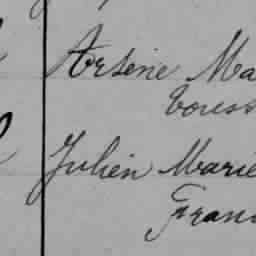 Arsène Ma
Touss
Julien Marie
Fran